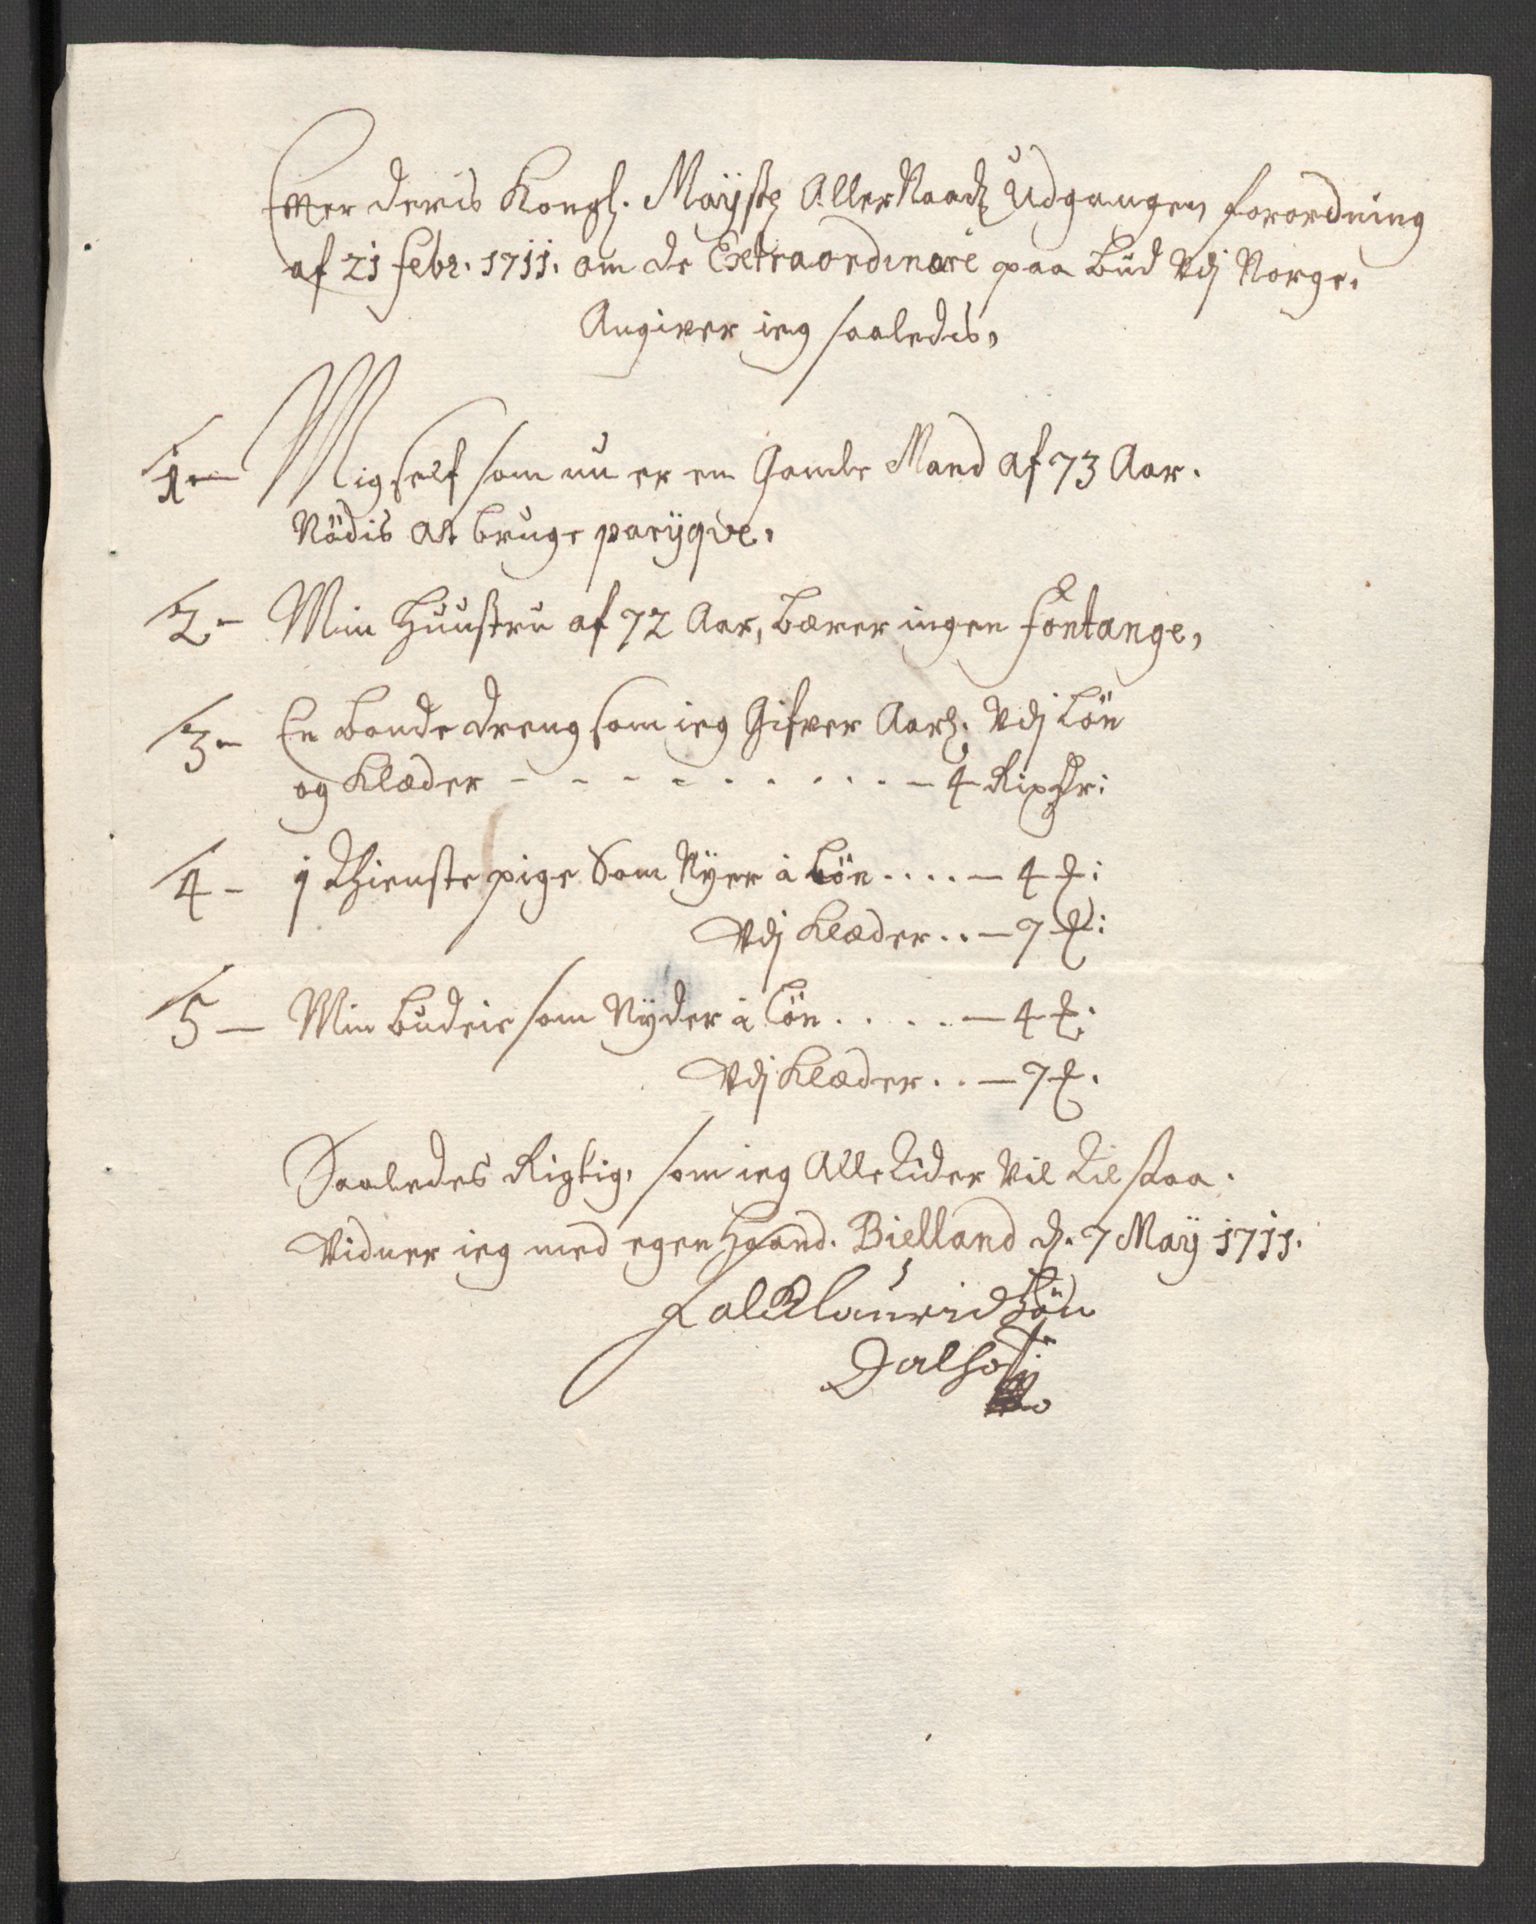 Efter deris Kongl. Maÿstz AllerNaadz Udgangen forordning
af 21 febr. 1711. om de Extraordinare paa bud Vdj Norge.
Angiver ieg saaledis,
1 - Mig self som nu er en Gamle Mand af 73 Aar.
Nödis at bruge parÿqve,
2 - Min Huustru af 72 Aar, bærer ingen fontange,
3 - En bonde dreng som ieg Gifver Aarl. Vdj Lön
og Klæder - - - - - - - - - 4 Rixdr:
4 - 1 Thieneste pige Som Nÿer i Lön .... - 4 d:
Vdj Klæder .. - 7 d:
5 - Min budeie som Nÿder i Lön ..... - 4 d:
Vdj Klæder .. - 7 d.
Saaledes Rigtig, som ieg Alle tider Vil til staa.
Vidner ieg med egen Haand. Bielland d. 7 Maÿ 1711.
Falck Lauridsön